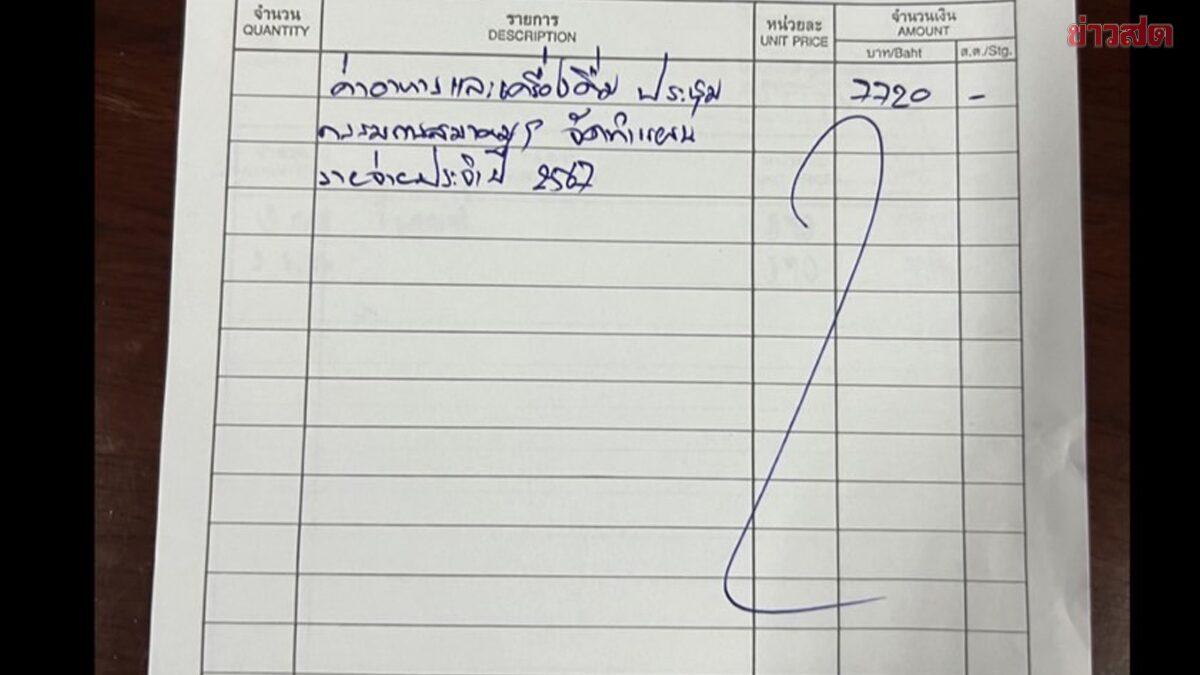 ข่าวสด
จำนวน รายการ หน่วยละ จำนวนเงิน
QUANTITY DESCRIPTION UNIT PRICE AMOUNT
บาท/Baht ส.ต./Stg.
ค่าอาหารและเครื่องดื่ม ประชุม 7720 -
กรรมการสมาคมฯ จัดทำแผน
รายจ่ายประจำปี 2567